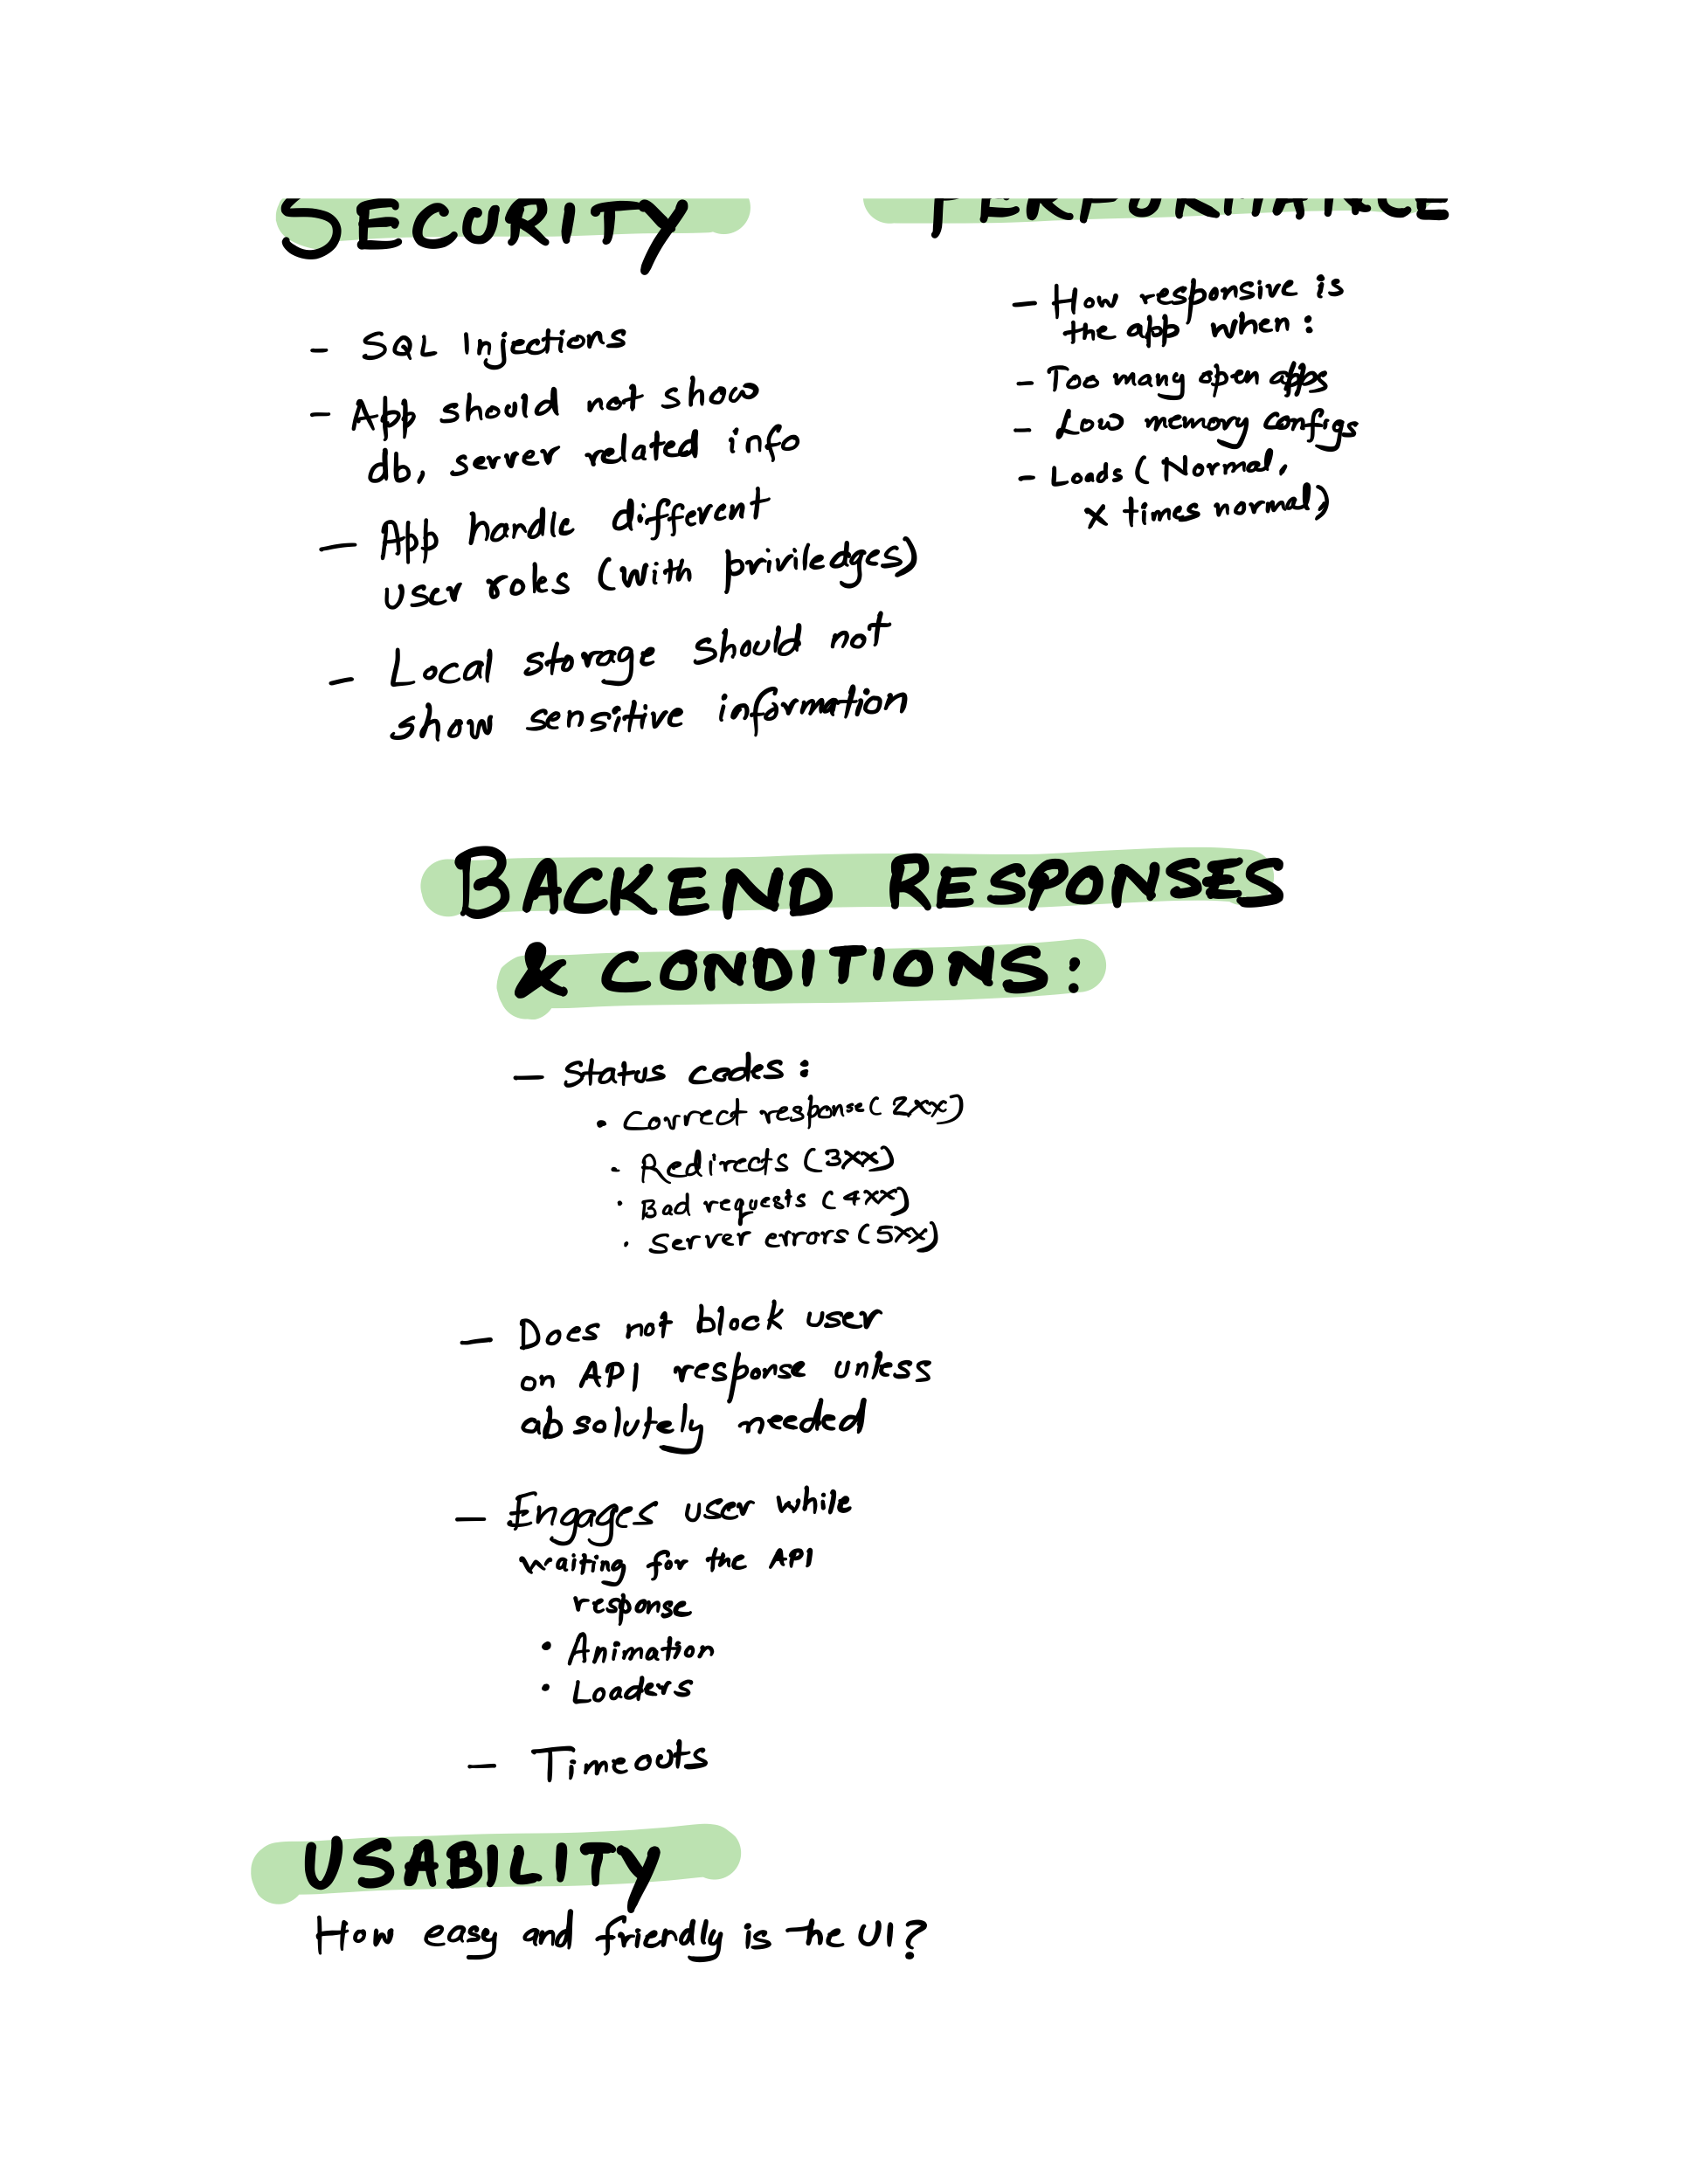 SECURITY
- SQL Injections
- App should not show
db, server related info
- App handle different
user roles (with priviledges)
- Local storage should not
show sensitive information
PERFORMANCE
- How responsive is
the app when:
- Too many open apps
- Low memory configs
- Loads (Normal,
x times normal)
BACKEND RESPONSES
& CONDITIONS:
- Status codes:
• Correct response (2xx)
• Redirects (3xx)
• Bad requests (4xx)
• Server errors (5xx)
- Does not block user
on API response unless
absolutely needed
- Engages user while
waiting for the API
response
• Animation
• Loaders
- Timeouts
USABILITY
How easy and friendly is the UI?